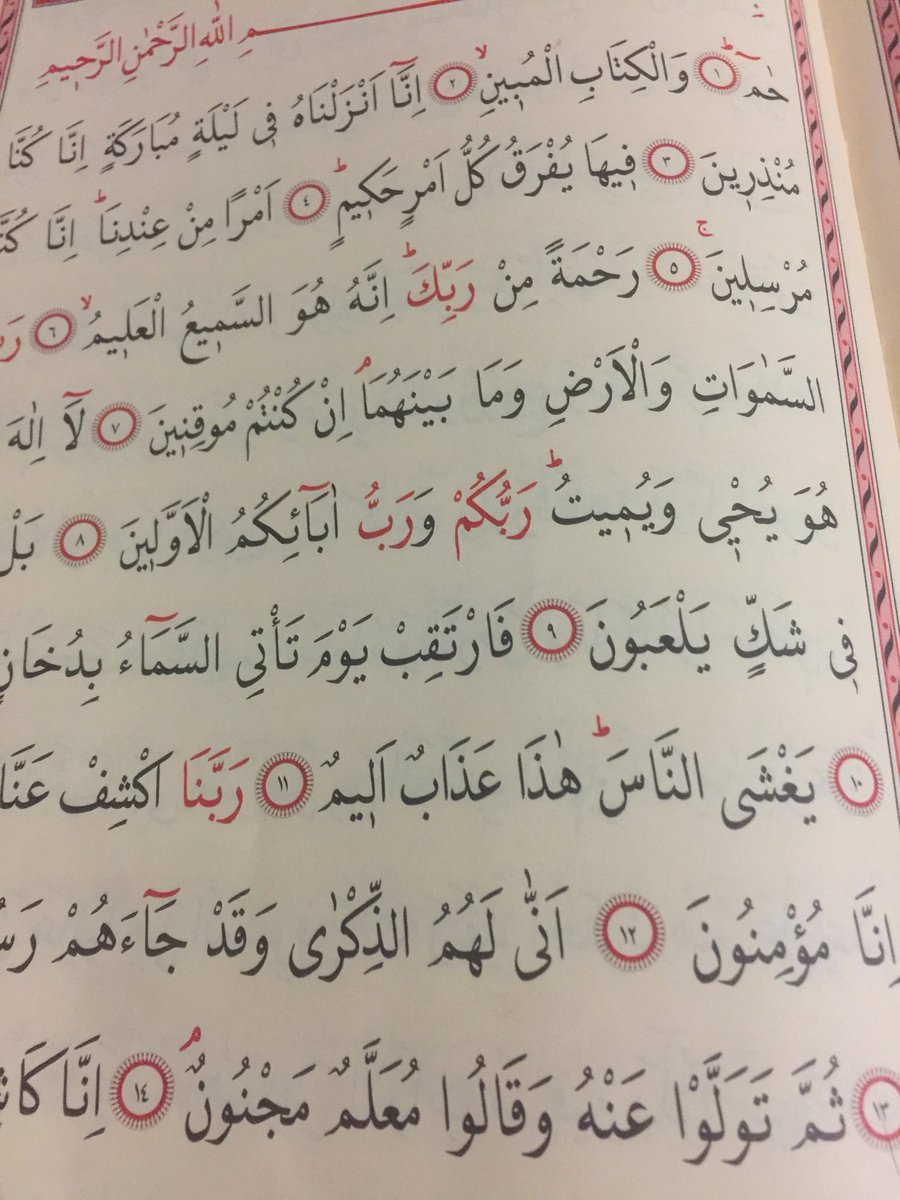 ـمِ اللّٰهِ الرَّحْمٰنِ الرَّحٖيمِ
حٰمٓ ﴿١﴾ وَالْكِتَابِ الْمُبٖينِ ﴿٢﴾ اِنَّٓا اَنْزَلْنَاهُ فٖى لَيْلَةٍ مُبَارَكَةٍ اِنَّا كُنَّا
مُنْذِرٖينَ ﴿٣﴾ فٖيهَا يُفْرَقُ كُلُّ اَمْرٍ حَكٖيمٍ ﴿٤﴾ اَمْرًا مِنْ عِنْدِنَا اِنَّا كُنَّا
مُرْسِلٖينَ ﴿٥﴾ رَحْمَةً مِنْ رَبِّكَ اِنَّهُ هُوَ السَّمٖيعُ الْعَلٖيمُ ﴿٦﴾
السَّمٰوَاتِ وَالْاَرْضِ وَمَا بَيْنَهُمَا اِنْ كُنْتُمْ مُوقِنٖينَ ﴿٧﴾ لَٓا اِلٰهَ
هُوَ يُحْيٖ وَيُمٖيتُ رَبُّكُمْ وَرَبُّ اٰبَٓائِكُمُ الْاَوَّلٖينَ ﴿٨﴾ بَلْ
فٖى شَكٍّ يَلْعَبُونَ ﴿٩﴾ فَارْتَقِبْ يَوْمَ تَأْتِى السَّمَٓاءُ بِدُخَانٍ
﴿١٠﴾ يَغْشَى النَّاسَ هٰذَا عَذَابٌ اَلٖيمٌ ﴿١١﴾ رَبَّنَا اكْشِفْ عَنَّا
اِنَّا مُؤْمِنُونَ ﴿١٢﴾ اَنّٰى لَهُمُ الذِّكْرٰى وَقَدْ جَٓاءَهُمْ
﴿١٣﴾ ثُمَّ تَوَلَّوْا عَنْهُ وَقَالُوا مُعَلَّمٌ مَجْنُونٌ ﴿١٤﴾ اِنَّا